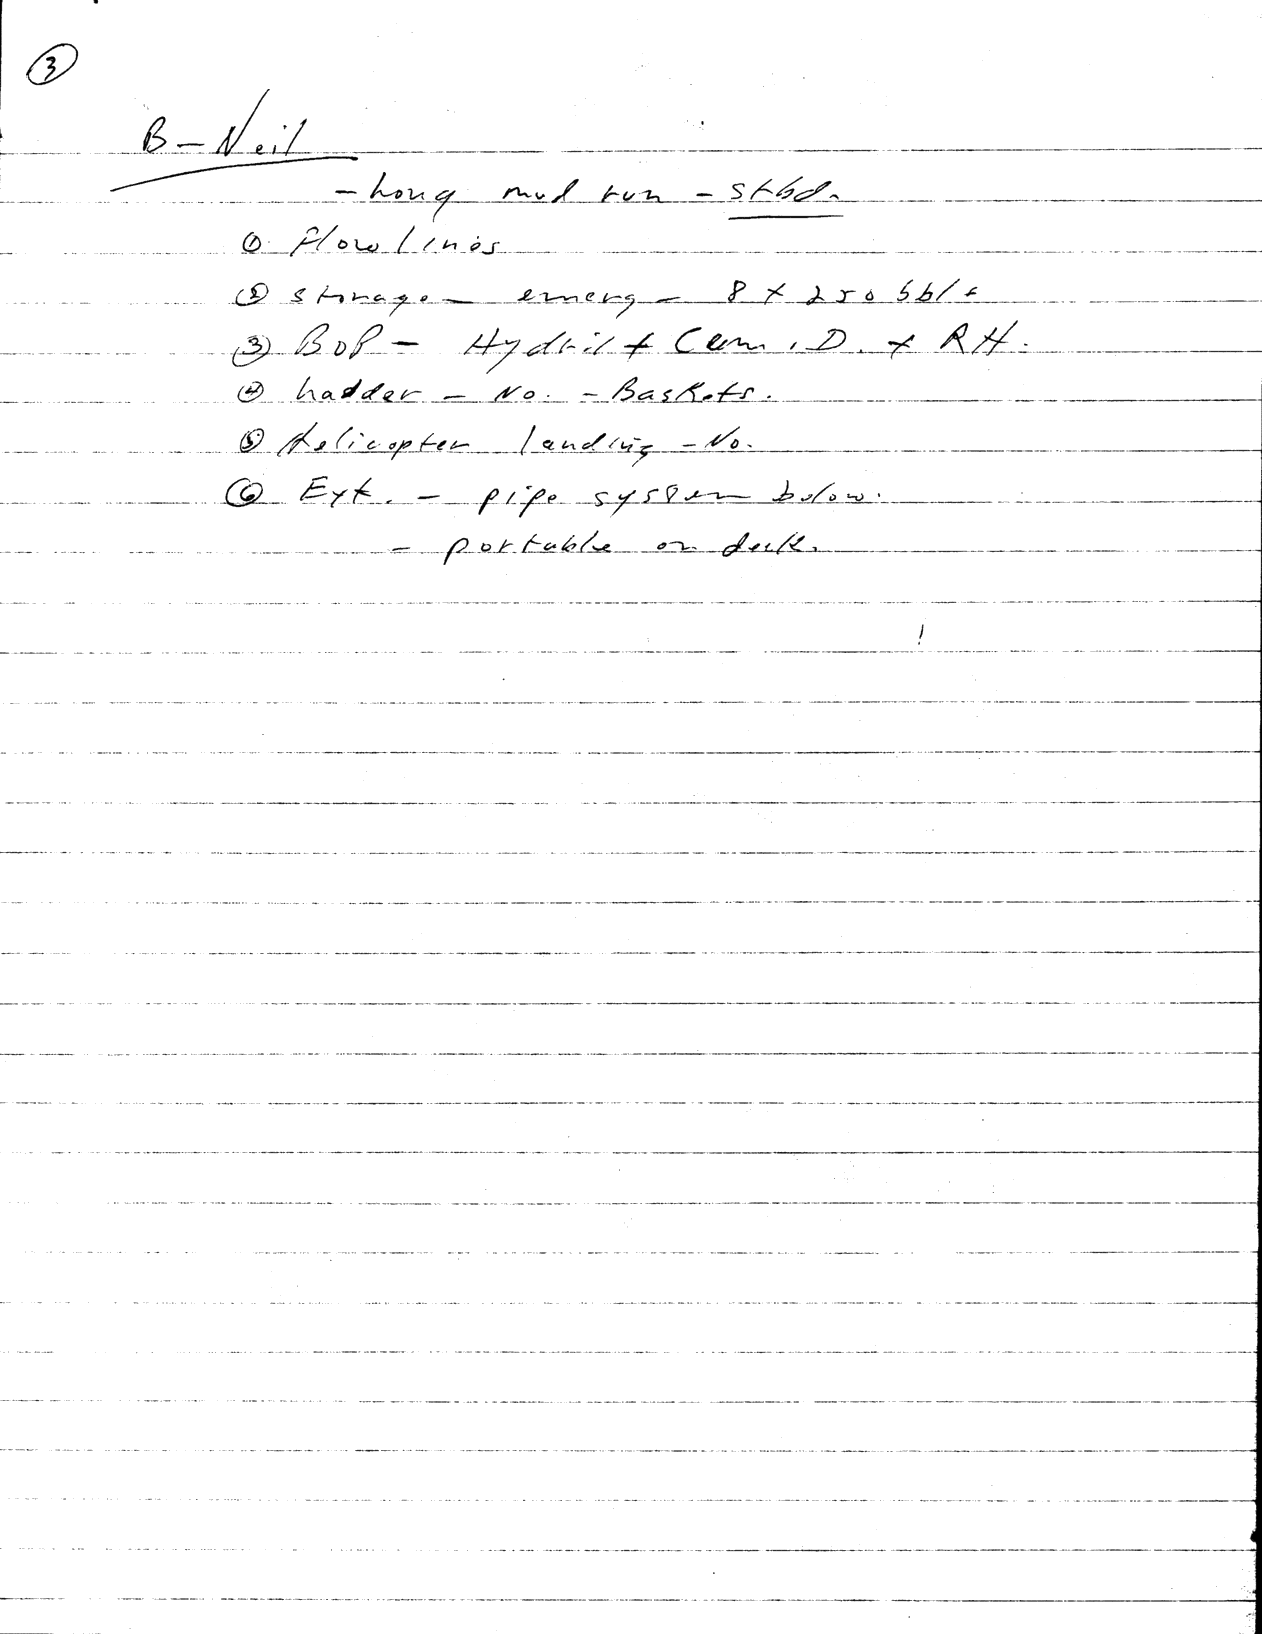 ③
B - Neil
- Long mud run - stbd.
① Flow lines
② storage - emerg - 8 x 250 bbls
③ BOP - Hydril + Cam. D. + RH.
④ Ladder - No. - Baskets.
⑤ Helicopter landing - No.
⑥ Ext. - pipe system below.
- portable on deck.